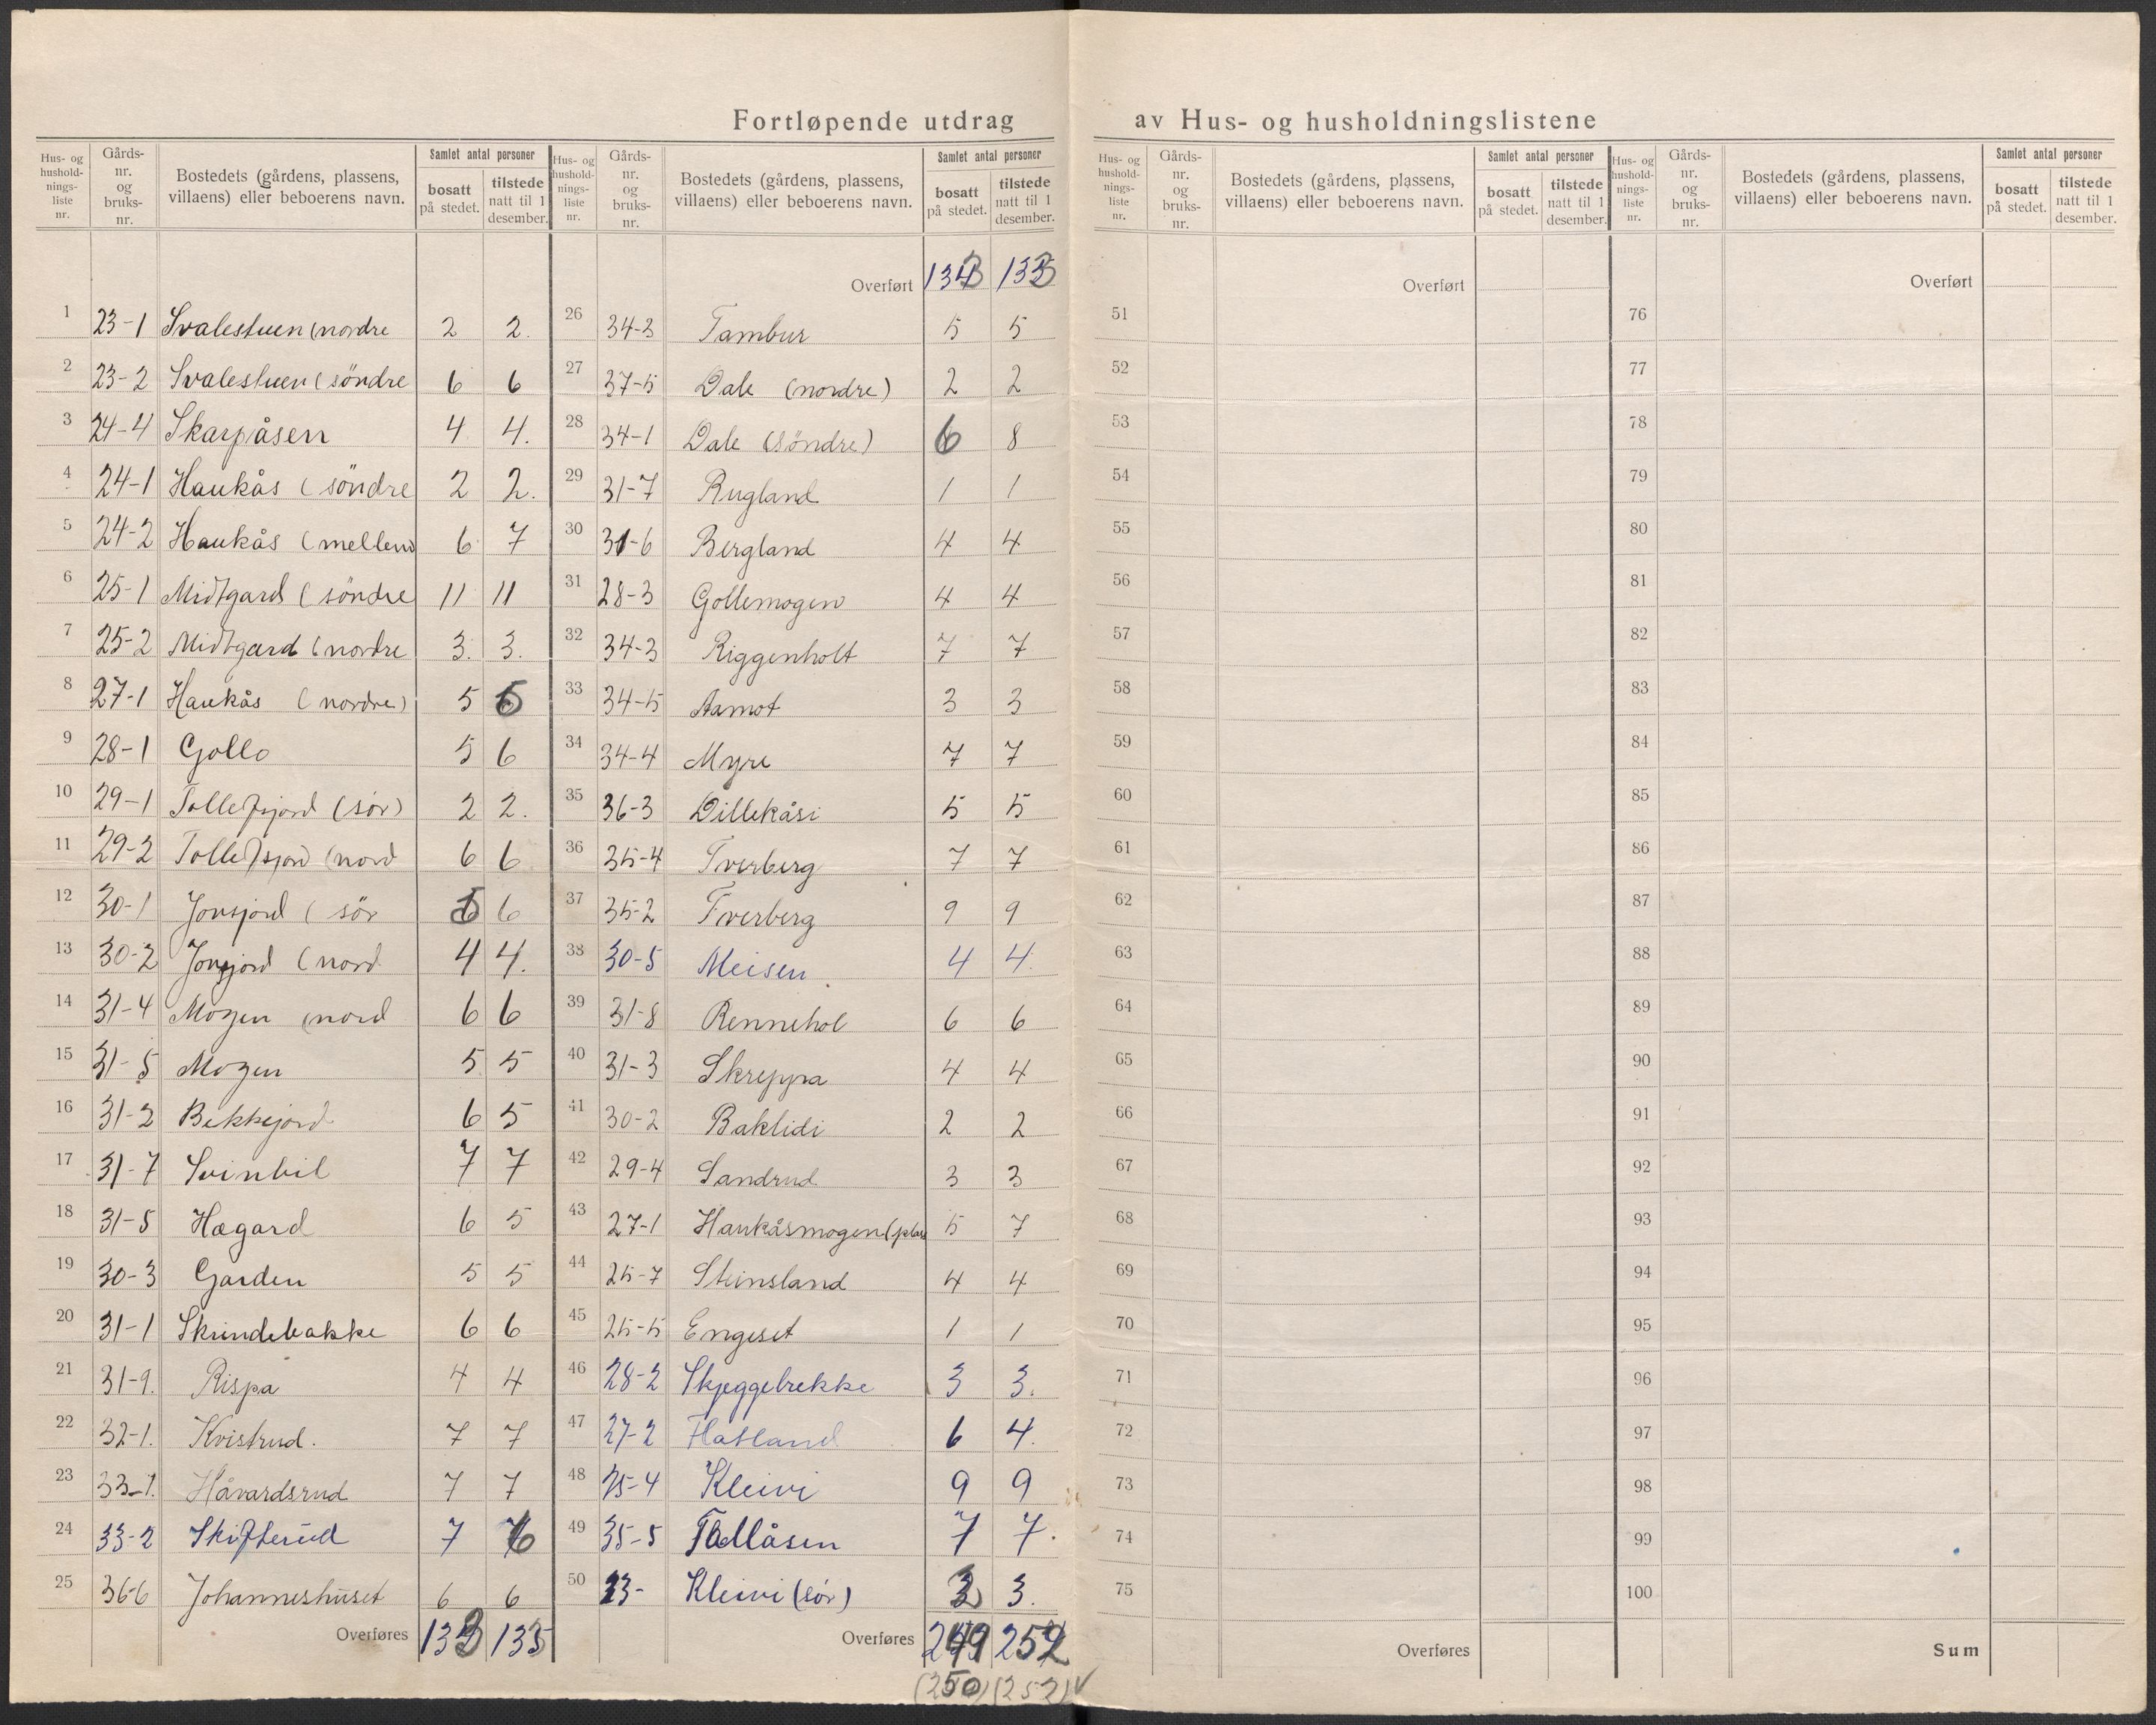 Fortløpende utdrag av Hus- og husholdningslistene
Hus- og husholdnings-liste nr. Gårds-nr. og bruks-nr. Bostedets (gårdens, plassens, villaens) eller beboerens navn. Samlet antal personer bosatt på stedet. tilstede natt til 1 desember.
1 23-1 Svalestuen (nordre 2 2.
2 23-2 Svalestuen (söndre 6 6
3 24-4 Skarpåsen 4 4.
4 24-1 Haukås (söndre 2 2.
5 24-2 Haukås (mellem 6 7
6 25-1 Midtgard (söndre 11 11
7 25-2 Midtgard (nordre 3. 3.
8 27-1 Haukås (nordre) 5
9 28-1 Gollo 5 6
10 29-1 Tollefsjord (sör) 2 2.
11 29-2 Tollefsjord (nord 6 6
12 30-1 Jonsjord (sör 6
13 30-2 Jonsjord (nord 4 4.
14 31-4 Mogen (nord 6 6
15 31-5 Mogen 5 5
16 31-2 Bekkejord 6 5
17 31-7 Svinbil 7 7
18 31-5 Hægard 6 5
19 30-3 Garden 5 5
20 31-1 Skrindebakke 6 6
21 31-9. Rispa 4 4
22 32-1. Kvistrud. 7 7
23 33-1. Håvardsrud 7 7
24 33-2 Skifterud 7 6
25 36-6 Johanneshuset 6 6
Overføres 133 135
Hus- og husholdnings-liste nr. Gårds-nr. og bruks-nr. Bostedets (gårdens, plassens, villaens) eller beboerens navn. Samlet antal personer bosatt på stedet. tilstede natt til 1 desember.
Overført 133
26 34-3 Tambur 5 5
27 37-5 Dale (nordre) 2 2
28 34-1 Dale (söndre) 6 8
29 31-7 Rugland 1 1
30 31-6 Bergland 4 4
31 28-3 Gollemogen 4 4
32 34-3 Riggenholt 7 7
33 34-5 Aamot 3 3
34 34-4 Myre 7 7
35 36-3 Dillekåsi 5 5
36 35-4 Tverberg 7 7
37 35-2 Tverberg 9 9
38 30-5 Meisen 4 4.
39 31-8 Rennehol 6 6
40 31-3 Skreppa 4 4
41 30-2 Baklidi 2 2
42 29-4 Sandrud 3 3
43 27-1 Haukåsmogen (plas 5 7
44 25-7 Steinsland 4 4
45 25-5 Engeset 1 1
46 28-2 Skjeggebrekke 3 3.
47 27-2 Flatland 6 4.
48 25-4 Kleivi 9 9
49 35-5 Tallåsen 7 7.
50 23- Kleivi (sör) 3 3.
Overføres 249 252
(250) (252) ✓
Hus- og husholdnings-liste nr. Gårds-nr. og bruks-nr. Bostedets (gårdens, plassens, villaens) eller beboerens navn. Samlet antal personer bosatt på stedet. tilstede natt til 1 desember.
Overført
51
52
53
54
55
56
57
58
59
60
61
62
63
64
65
66
67
68
69
70
71
72
73
74
75
Overføres
Hus- og husholdnings-liste nr. Gårds-nr. og bruks-nr. Bostedets (gårdens, plassens, villaens) eller beboerens navn. Samlet antal personer bosatt på stedet. tilstede natt til 1 desember.
Overført
76
77
78
79
80
81
82
83
84
85
86
87
88
89
90
91
92
93
94
95
96
97
98
99
100
Sum